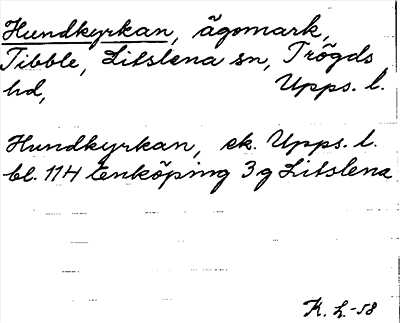 Hundkyrkan, ägomark,
Tibble, Litslena sn, Trögds
hd, Upps. l.
Hundkyrkan, ek. Upps. l.
bl. 114 Enköping 3g Litslena
K. L. -58